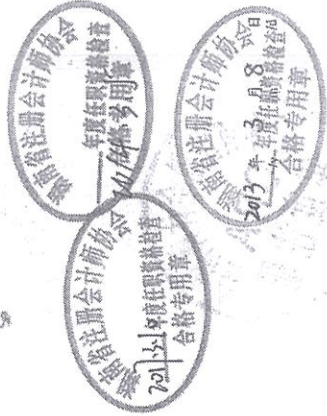 湖南省注册会计师协会
年度任职资格检查
合格专用章
湖南省注册会计师协会
2013年3月8日
年度任职资格检查
合格专用章
湖南省注册会计师协会
年度任职资格检查
合格专用章